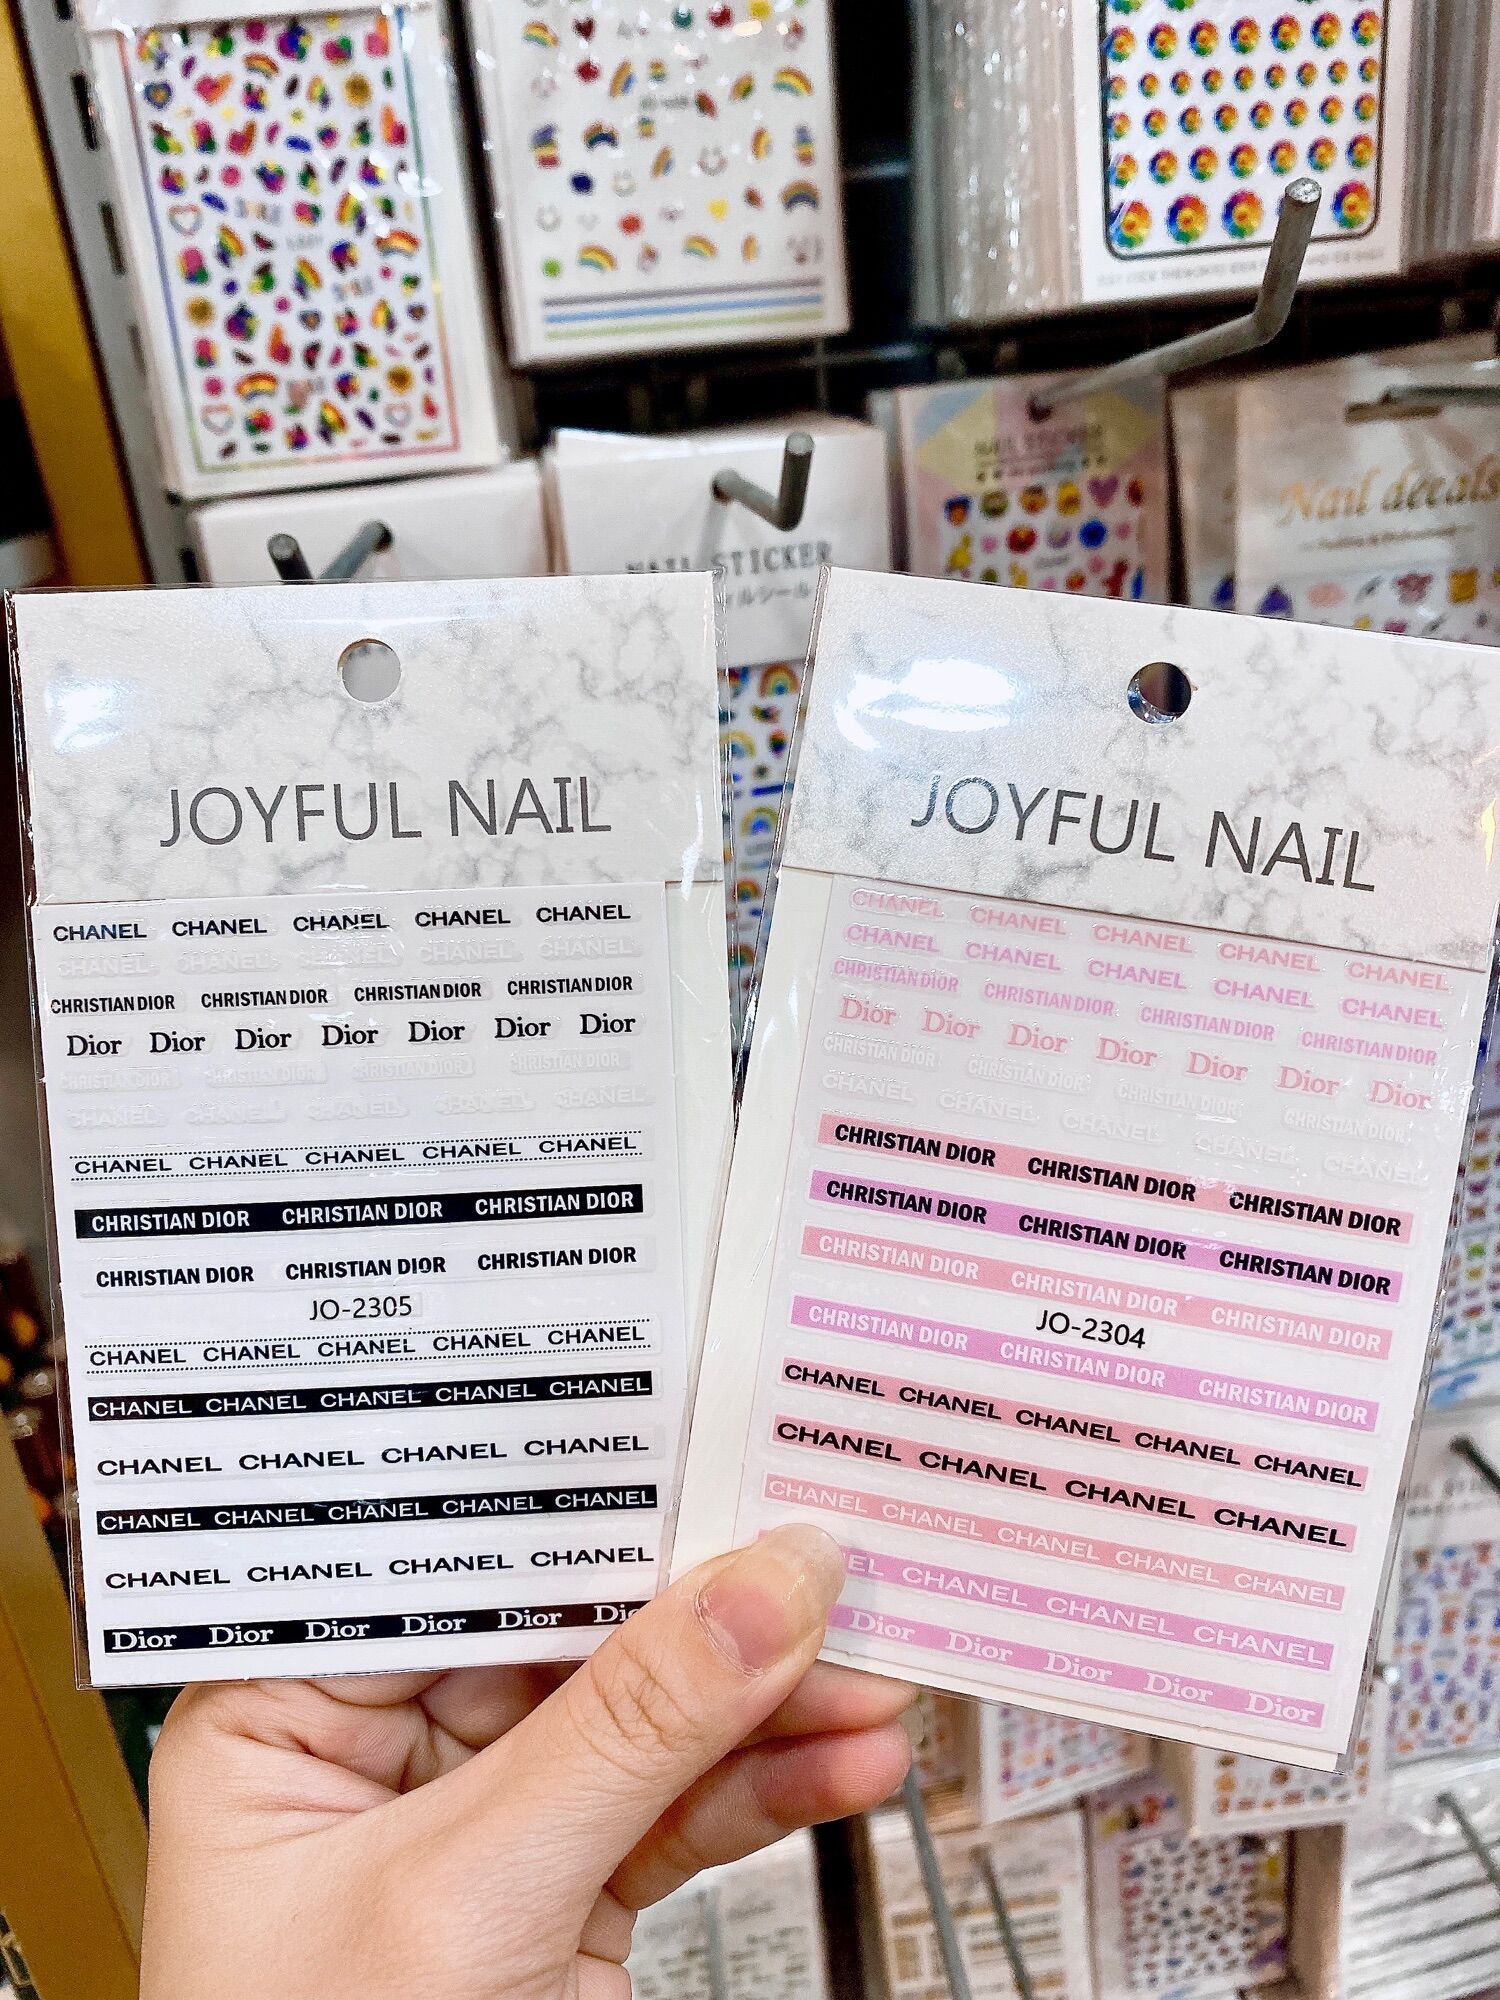 NAIL STICKER
Nail decals
NAIL STICKER
JOYFUL NAIL
CHANEL CHANEL CHANEL CHANEL CHANEL
CHANEL CHANEL CHANEL CHANEL CHANEL
CHRISTIAN DIOR CHRISTIAN DIOR CHRISTIAN DIOR CHRISTIAN DIOR
Dior Dior Dior Dior Dior Dior Dior
CHRISTIAN DIOR CHRISTIAN DIOR CHRISTIAN DIOR CHRISTIAN DIOR
CHANEL CHANEL CHANEL CHANEL CHANEL
CHANEL CHANEL CHANEL CHANEL CHANEL
CHRISTIAN DIOR CHRISTIAN DIOR CHRISTIAN DIOR
CHRISTIAN DIOR CHRISTIAN DIOR CHRISTIAN DIOR
JO-2305
CHANEL CHANEL CHANEL CHANEL CHANEL
CHANEL CHANEL CHANEL CHANEL CHANEL
CHANEL CHANEL CHANEL CHANEL
CHANEL CHANEL CHANEL CHANEL CHANEL
CHANEL CHANEL CHANEL CHANEL
Dior Dior Dior Dior Dior Di
JOYFUL NAIL
CHANEL CHANEL CHANEL CHANEL CHANEL
CHANEL CHANEL CHANEL CHANEL CHANEL
CHRISTIAN DIOR CHRISTIAN DIOR CHRISTIAN DIOR CHRISTIAN DIOR
Dior Dior Dior Dior Dior Dior Dior
CHRISTIAN DIOR CHRISTIAN DIOR CHRISTIAN DIOR CHRISTIAN DIOR
CHANEL CHANEL CHANEL CHANEL CHANEL
CHRISTIAN DIOR CHRISTIAN DIOR CHRISTIAN DIOR
CHRISTIAN DIOR CHRISTIAN DIOR CHRISTIAN DIOR
CHRISTIAN DIOR CHRISTIAN DIOR CHRISTIAN DIOR
JO-2304
CHRISTIAN DIOR CHRISTIAN DIOR CHRISTIAN DIOR
CHANEL CHANEL CHANEL CHANEL CHANEL
CHANEL CHANEL CHANEL CHANEL
CHANEL CHANEL CHANEL CHANEL CHANEL
EL CHANEL CHANEL CHANEL
Dior Dior Dior Dior Dior